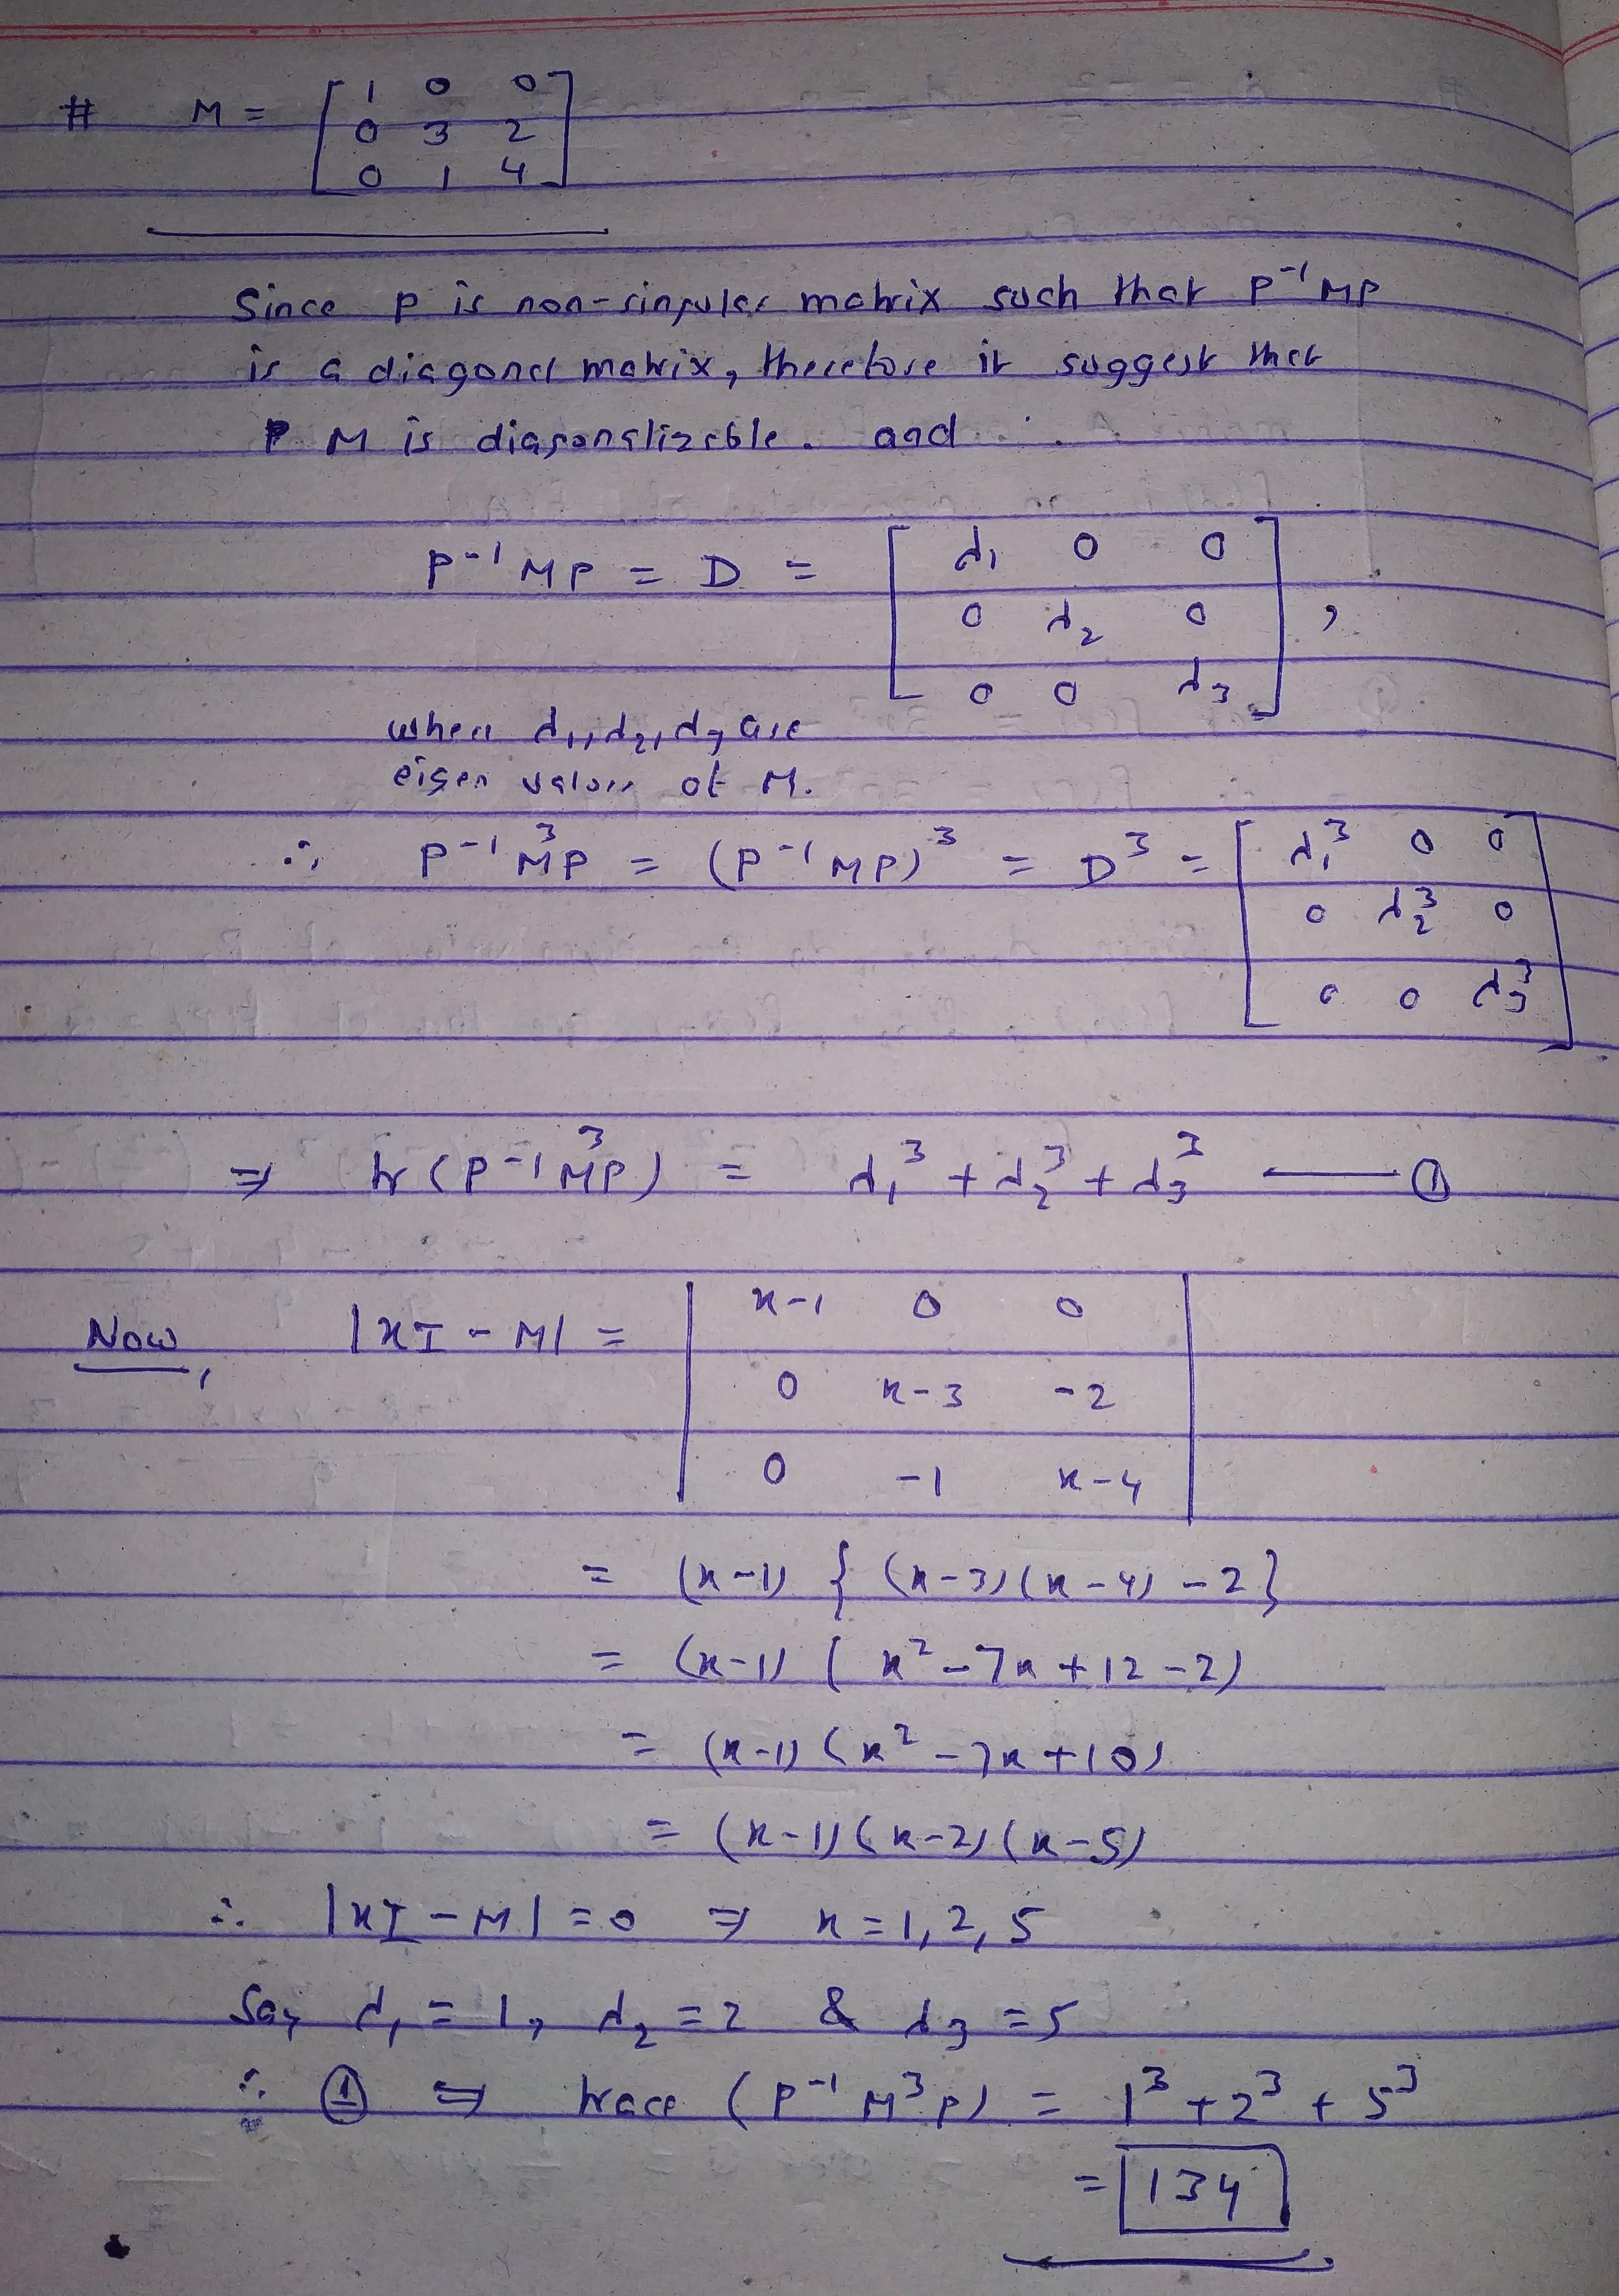 # M = [ 1 0 0
0 3 2
0 1 4 ]
Since P is non-singular matrix such that P⁻¹MP
is a diagonal matrix, therefore it suggest that
M is diagonalizable. and
P⁻¹MP = D = [ λ₁ 0 0
0 λ₂ 0
0 0 λ₃ ] ,
where λ₁, λ₂, λ₃ are
eigen values of M.
∴ P⁻¹M³P = (P⁻¹MP)³ = D³ = [ λ₁³ 0 0
0 λ₂³ 0
0 0 λ₃³ ]
⇒ tr(P⁻¹M³P) = λ₁³ + λ₂³ + λ₃³ —— ①
Now, |xI - M| = | x-1 0 0
0 x-3 -2
0 -1 x-4 |
= (x-1) { (x-3)(x-4) - 2 }
= (x-1) ( x² - 7x + 12 - 2)
= (x-1) (x² - 7x + 10)
= (x-1)(x-2)(x-5)
∴ |xI - M| = 0 ⇒ x = 1, 2, 5
Say λ₁ = 1, λ₂ = 2 & λ₃ = 5
∴ ① ⇒ trace (P⁻¹M³P) = 1³ + 2³ + 5³
= 134